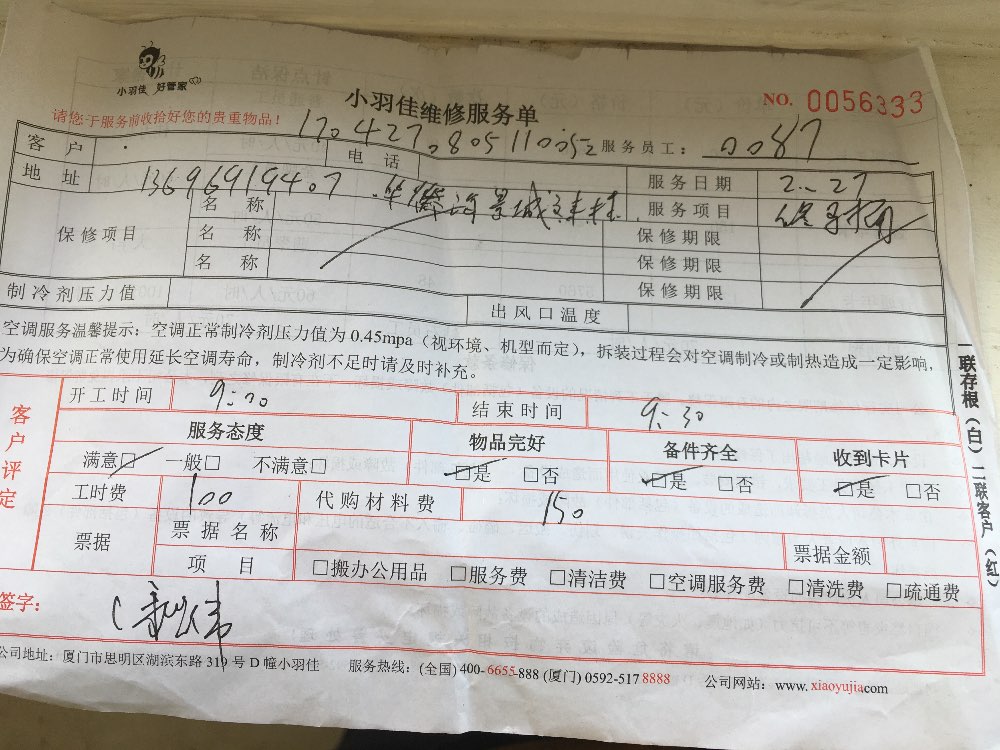 小羽佳 好管家
小羽佳维修服务单
NO. 0056333
请您于服务前收拾好您的贵重物品！
170427080511005
服务员工： 0087
客户
电话
服务日期 2.27
地址 13696919407
服务项目
保修项目
名称
保修期限
名称
保修期限
名称
保修期限
制冷剂压力值
出风口温度
空调服务温馨提示：空调正常制冷剂压力值为 0.45mpa（视环境、机型而定），拆装过程会对空调制冷或制热造成一定影响，
为确保空调正常使用延长空调寿命，制冷剂不足时请及时补充。
客户评定
开工时间 9:00
结束时间 9:30
服务态度
物品完好
备件齐全
收到卡片
满意□ 一般□ 不满意□
□是 □否
□是 □否
□是 □否
工时费 100
代购材料费 150
票据
票据名称
票据金额
项目
□搬办公用品 □服务费 □清洁费 □空调服务费 □清洗费 □疏通费
签字：
公司地址：厦门市思明区湖滨东路 319 号 D 幢小羽佳 服务热线：(全国) 400-6655-888 (厦门) 0592-517 8888 公司网站：www.xiaoyujia.com
一联存根（白）二联客户（红）